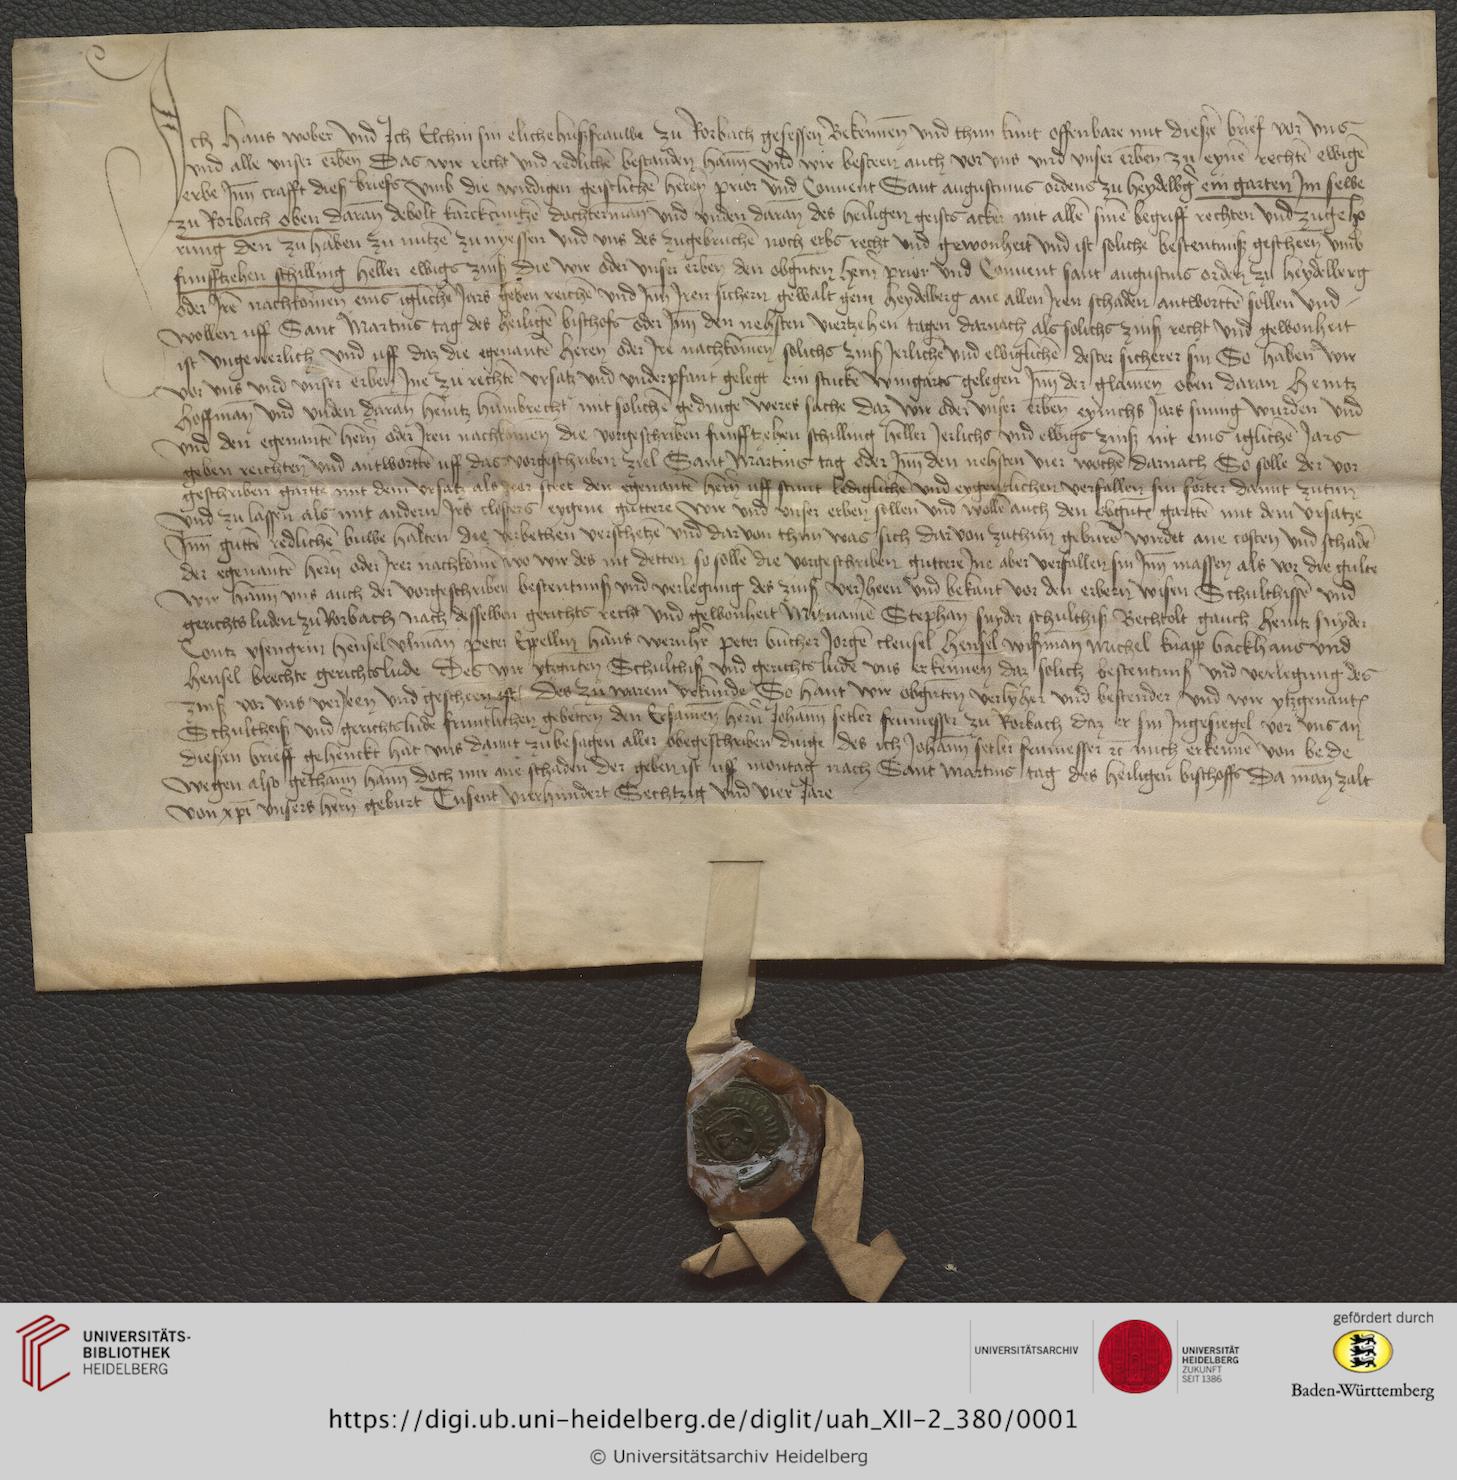 Ich Hans wober vnd Ich Elchin sin eliche hußfrauwe zu Rorbach gesessen Bekennen vnd thun kunt offenbare mit diesem brief vor vns
vnd alle vnser erben Das wir recht vnd redlichē bestanden hann vnd wir besteen auch vor vns vnd vnser erben zu eynē rechtē ewigē
erbe Inn crafft dieß briefs vmb die wirdigen geistlichē heren prior vnd Conuent Sant augustinus ordens zu heydelbg ein garten Im felde
zu Rorbach oben daran debolt dochterman vnd vnden daran des heiligen geists acker mit allē sinē begriff rechten vnd zugeho
rung den zu haben zu nutzē zu nyessen vnd vns des zugebruchē noch erbs recht vnd gewonheit vnd ist soliche bestentniß gescheen vmb
funfftzehen schilling heller ewigs zinß die wir oder vnser erben den obgnten hern prior vnd Conuent sant augustinus orden zu heydelberg
oder Irē nachkomen eins iglichē Jars geben reichē vnd Inn Iren sichern gewalt gein heydelberg ane allen Iren schaden antwortē sollen vnd
wollen vff Sant Martins tag des heiligē bischofs oder Inn den nehsten viertzehen tagen darnach als solichs zinß recht vnd gewonheit
ist vngeuerlich vnd vff daz die egenantē heren oder Ire nachkomen solichs zinß Jerlichē vnd ewiglichē dester sicherer sin So haben wir
vor vns vnd vnser erben Ine zu rechtē vrsatz vnd vnderpfant gelegt ein stucke wingarts gelegen Inn der oben daran Heintz
Hoffman vnd vnden daran heintz humbrecht mit solichē gedinge weres sache daz wir oder vnser erben eynichs Jars sumig wurden vnd
vnd den egenantē hern oder Iren nachkomen die vorgeschriben funfftzehen schilling heller Jerlichs vnd ewigs zinß nit eins iglichē Jars
geben reichten vnd antwortē vff das vorgeschriben ziel Sant Martins tag oder Inn den nehsten vier wochē darnach So solle der vor
geschriben gartē mit dem vrsatz als vor steet den egenantē hern vff stunt lediglichē vnd eygentlichen verfallen sin forter damit zutun
vnd zu lassen als mit andern Irs closters eygene guttere wir vnd vnser erben sollen vnd wollē auch den obgntē gartē mit dem vrsatze
Inn gutē redlichē buwe halten die verschetze vnd dar von thun was sich dar von zuthun geburē wirdet ane costen vnd schadē
der egenantē hern oder Irer nachkomē wo wir des nit detten so sollē die vorgeschriben guttere Ine aber verfallen sin Inn massen als vor die gulte
Wir hann vns auch der vorgeschriben bestentniß vnd verlegung des zinß verJheen vnd bekant vor den erbern wisen Schulthissē vnd
gerichts luden zu Rorbach nach desselben gerichts recht vnd gewonheit Mit namē Stephan snyder schulthiß Bechtolt gauch heintz snyder
Contz ysengrin hensel vlman peter Eppelin hans wernher peter bucher Jorgē clensel hensel wißman Michel knapp backhans vnd
hensel brechte gerichtslude Des wir ytzgnten Schulthiß vnd gerichts ludē vns erkennen daz solich bestentniß vnd verlegung des
zinß vor vns verJeen vnd gescheen ist Des zu warem vrkunde So hant wir obgnten verlyher vnd bestender vnd wir ytzgenantē
Schultheiß vnd gerichts lude fruntlichen gebetten den Ersamen hern Johann setler frumesser zu Rorbach daz er sin Ingesiegel vor vns an
diesen brieff gehenckt hat vns damit zubesagen aller obegeschriben dinge des ich Johann setler frumesser mich erkenne von bede
wegen also gethann hann doch mir ane schaden Der geben ist vff montag nach Sant Martins tag des heiligen bischoffs Da man zalt
von xpi vnsers hern geburt Tusent vierhundert Sechtzig vnd vier Jare
UNIVERSITÄTS-
BIBLIOTHEK
HEIDELBERG
UNIVERSITÄTSARCHIV
UNIVERSITÄT
HEIDELBERG
ZUKUNFT
SEIT 1386
gefördert durch
Baden-Württemberg
https://digi.ub.uni-heidelberg.de/diglit/uah_XII-2_380/0001
© Universitätsarchiv Heidelberg